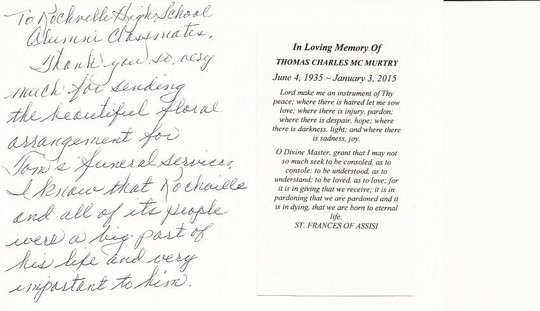 To Rockville High School
Alumni Classmates,
Thank you so very
much for sending
the beautiful floral
arrangement for
Tom's funeral services,
I know that Rockville
and all of its people
were a big part of
his life and very
important to him.
In Loving Memory Of
THOMAS CHARLES MC MURTRY
June 4, 1935 ~ January 3, 2015
Lord make me an instrument of Thy
peace; where there is hatred let me sow
love; where there is injury, pardon;
where there is despair, hope; where
there is darkness, light; and where there
is sadness, joy.
O Divine Master, grant that I may not
so much seek to be consoled, as to
console; to be understood, as to
understand; to be loved, as to love; for
it is in giving that we receive; it is in
pardoning that we are pardoned and it
is in dying, that we are born to eternal
life.
ST. FRANCES OF ASSISI